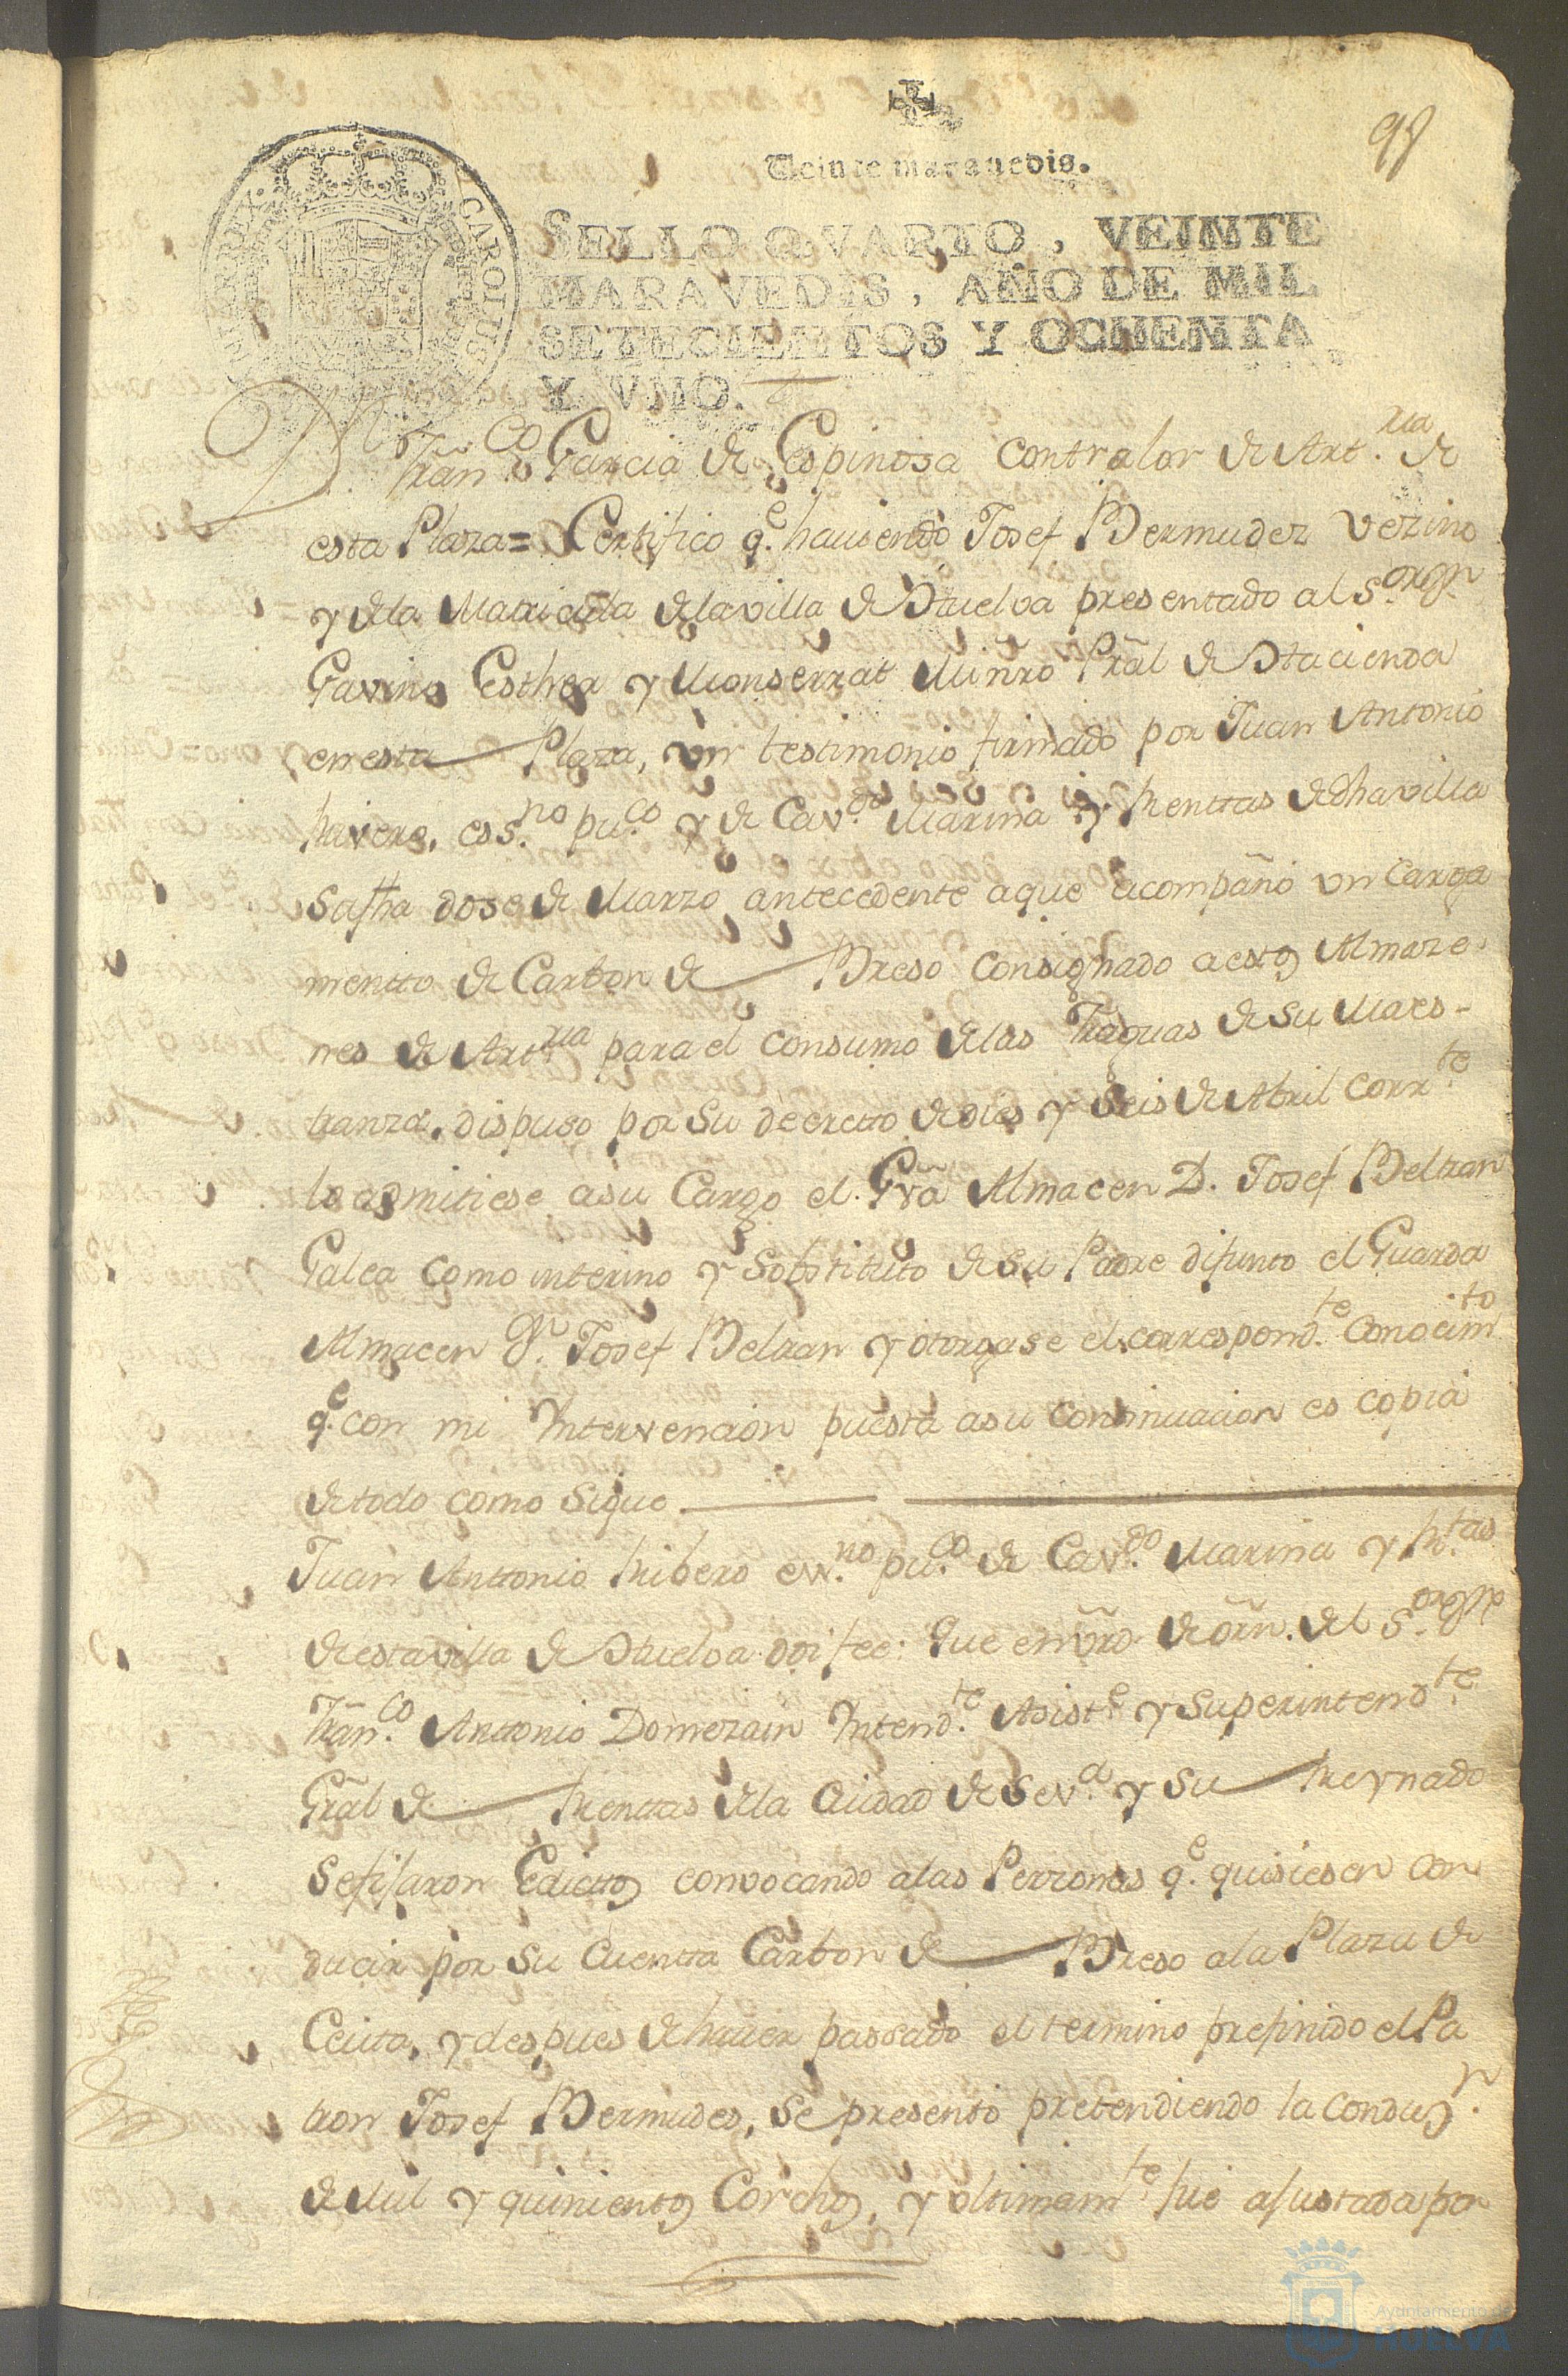 98
Veinte maravedis.
CAROLUS
SELLO QVARTO, VEINTE
MARAVEDIS, AÑO DE MIL
SETECIENTOS Y OCHENTA
Y VNO.
Dn. Franco. Garcia de Espinosa Contralor de Artria. de
esta Plaza = Certifico qe. haviendo Josef Bermudez Vezino
y de la Matricula de la villa de Huelva presentado al Sor. Dn.
Gavino Esther y Monserrat Miñro Prāl de Hacienda
en esta Plaza, un testimonio firmado por Juan Antonio
Rivero, essno. puco. y de Cavdo. Marina y Renttas de dha villa
su fha dose de Marzo antecedente a que acompañó un Carga
mentto de Carbon de Breso Consignado a estos Almaze-
nes de Artria para el consumo de las Fraguas de su Maes-
tranza, dispuso por su decretto de dies y Seis de Abril Corrte.
lo admitiese a su Cargo el Grā Almacen D. Josef Beltran
Galea como interino y Sobstituto de su Padre difunto el Guarda
Almacen Dn. Josef Beltran y otorgase el correspondte. Conocimto
qe. con mi Yntervencion puesta a su continuacion es copia
de todo como Sigue
Juan Anttonio Ribero essno. puco. de Cavdo. Marina y Rtas
de esta villa de Huelva doi fee: Que en vrd. de orn. del Sor. Dn
Franco. Anttonio Domezain Yntendte. Asiste y Superintendte.
Grāl de Renttas de la Ciudad de Seva. y su Reynado
se fijaron Edicttos convocando a las Perzonas qe. quisiesen con
ducir por su Cuentta Carbon de Breso a la Plaza de
Ceuta, y despues de haver passado el termino prefinido el Pa
tron Josef Bermudes, se presentó pretendiendo la Conduzn.
de Mil y quinientos Corchos, y ultimamte. fue ajustada por
Ayuntamiento de
HUELVA